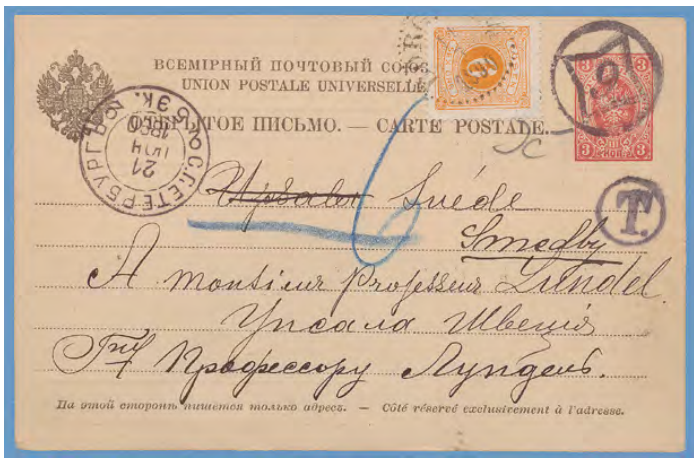 ВСЕМІРНЫЙ ПОЧТОВЫЙ СОЮЗ
UNION POSTALE UNIVERSELLE
ОТКРЫТОЕ ПИСЬМО. — CARTE POSTALE.
3 3
9
3 КОП. 3
6
С.ПЕТЕРБУРГЪ
21
1890
6
T.
Upsala Suède
Smedby
A monsieur Professeur Lundel.
Упсала Швеція
Гну Профессору Лундель.
На этой сторонѣ пишется только адресъ. — Côté réservé exclusivement à l'adresse.